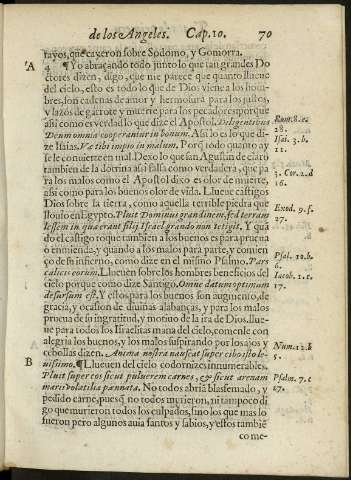 de los Angeles. Cap. 10. 70
rayos, que cayeron sobre Sodomo, y Gomorra.
A 4 ¶Yo abraçando todo junto lo que tan grandes Do
ctores dizen, digo, que me parece que quanto llueue
del cielo, esto es todo lo que de Dios viene a los hom-
bres, son cadenas de amor y hermosura para los justos,
y lazos de garrote y muerte para los pecadores: porque
assi como es verdad lo que dize el Apostol. Deligentibus
Deum omnia cooperantur in bonum. Assi lo es lo que di-
ze Isaias. Væ tibi impio in malum. Porq̃ todo quanto ay
se le conuierte en mal. Dexo lo que san Agustin de claro
tambien de la dotrina assi falsa como verdadera, que pa
ra los malos como el Apostol dixo es olor de muerte,
assi como para los buenos olor de vida. Llueue castigos
Dios sobre la tierra, como aquella terrible piedra que
llouio en Egypto. Pluit Dominus grandinem, sed terram
Iessem in qua erant filij Israel grando non tetigit. Y quã
do el castigo toque tambien a los buenos es para prueua
ò enmienda, y quando a los malos para parte, y comien
ço de su infierno, como dize en el mismo Psalmo. Pars
calicis eorum. Llueuen sobre los hombres beneficios del
cielo porque como dize Santigo. Omne datum optimum
desursum est. Y estos para los buenos son augmento, de
gracia, y ocasion de diuinas alabanças, y para los malos
prueua de su ingratitud, y motiuo de la ira de Dios. llue-
ue para todos los Israelitas mana del cielo, comenle con
alegria los buenos, y los malos suspirando por los ajos y
cebollas dizen. Anima nostra nauseat super cibo isto le-
B uissimo. ¶Llueuen del cielo codornizes innumerables.
Pluit super eos sicut puluerem carnes, & sicut arenam
maris volatilia pennata. No todos abriã blasfemado, y
pedido carne, pues q̃ no todos murieron, ni tampoco di
go que murieron todos los culpados, sino los que mas lo
fueron pero algunos auia santos y sabios, y estos tambiẽ
come-
Rom. 8. e.
28.
Isai. 3. b.
11.
3. Cor. 2. d
16.
Exod. 9. f.
27.
Psal. 10. b.
6.
Iacob. 1. c.
17.
Num. 21. b
5.
Psalm. 7. c
27.